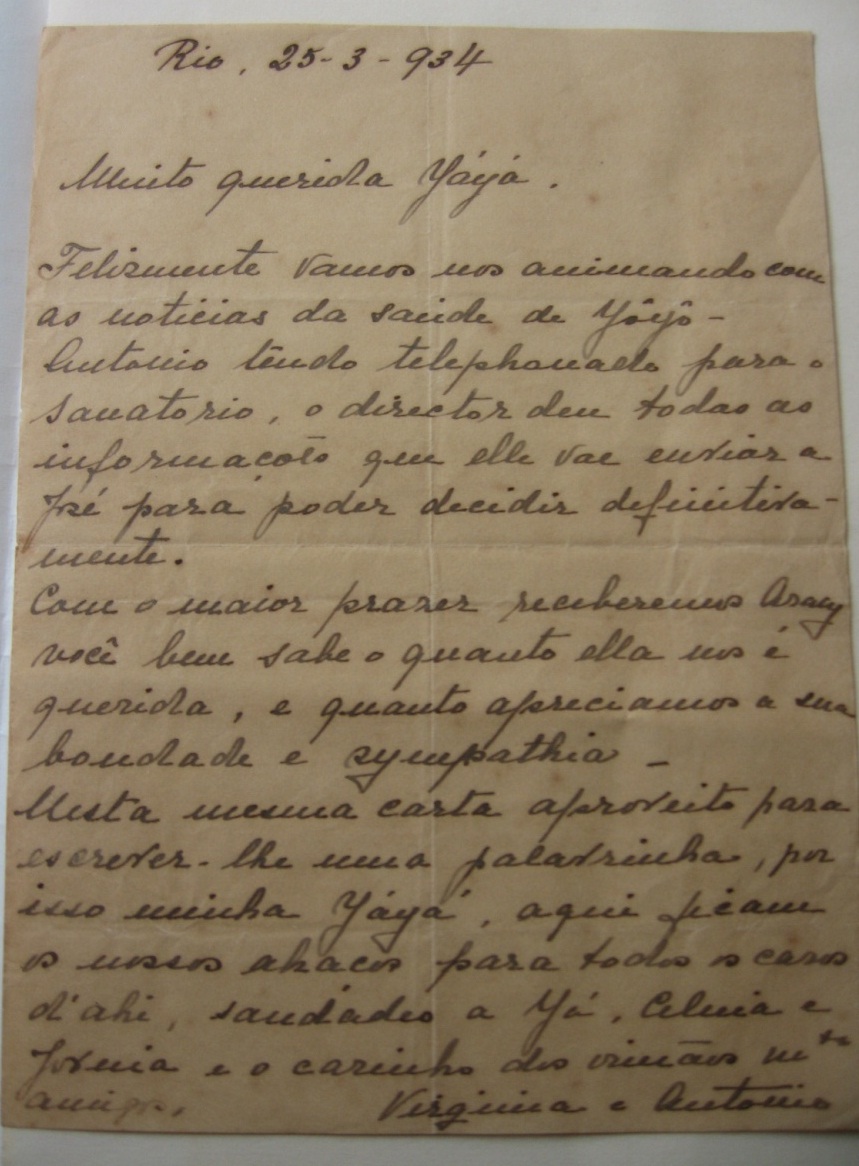 Rio, 25-3-934
Muito querida Yáyá.
Felizmente vamos nos animando com
as noticias da saúde de Yôyô -
Antonio tendo telephonado para o
Sanatorio, o director deu todas as
informações que elle vae enviar a
José para poder decidir definitiva-
mente.
Com o maior prazer receberemos Aracy
você bem sabe o quanto ella nos é
querida, e quanto apreciamos a sua
bondade e sympathia -
Nesta mesma carta aproveito para
escrever-lhe uma palavrinha, por
isso minha Yáyá, aqui ficam
os nossos abraços para todos os caros
d'ahi, saudades a Yá, Celnia e
e o carinho dos irmãos mto
amigos.    Virginia e Antonio